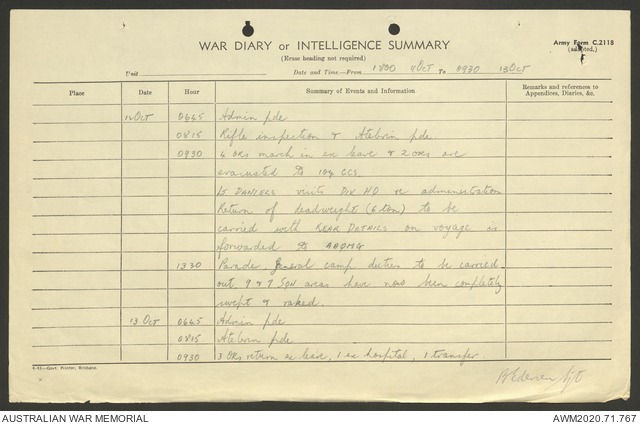 WAR DIARY or INTELLIGENCE SUMMARY
(Erase heading not required)
Army Form C.2118
(adapted.)
Unit
Date and Time—From 1800 9 Oct To 0930 13 Oct
Place Date Hour Summary of Events and Information Remarks and references to Appendices, Diaries, &c.
12 Oct 0645 Admin pde
0815 Rifle inspection & Atebrin pde
0930 4 ORs march in ex leave & 2 ORs are
evacuated to 104 CCS
Lt DANIELS visits DIV HQ re administration
Return of deadweight (6 ton) to be
carried with REAR DETAILS on voyage is
forwarded to
1330 Parade general camp duties to be carried
out 9 & 7 SQN areas have now been completely
swept & raked.
13 Oct 0645 Admin pde
0815 Atebrin pde
0930 3 ORs return ex leave, 1 ex hospital, 1 transfer
4-43—Govt. Printer, Brisbane.
AUSTRALIAN WAR MEMORIAL
AWM2020.71.767